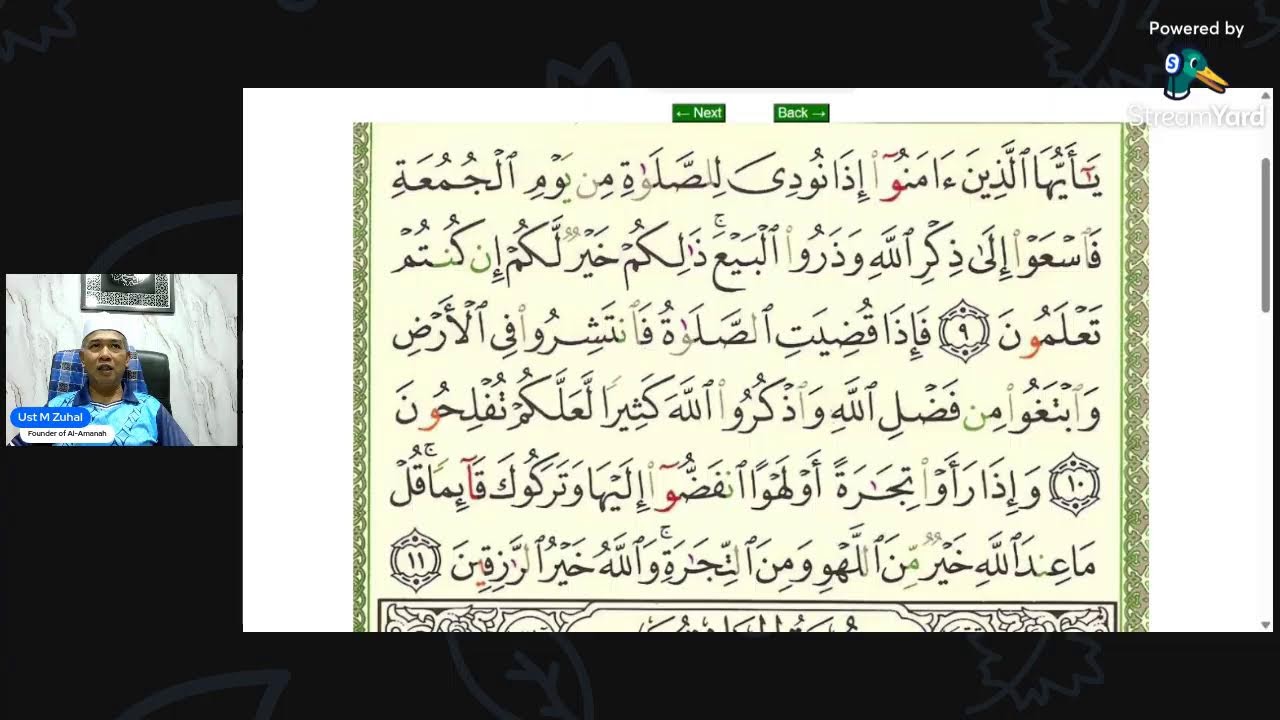 Powered by
StreamYard
← Next
Back →
يَـٰٓأَيُّهَا ٱلَّذِينَ ءَامَنُوٓا۟ إِذَا نُودِىَ لِلصَّلَوٰةِ مِن يَوْمِ ٱلْجُمُعَةِ
فَٱسْعَوْا۟ إِلَىٰ ذِكْرِ ٱللَّهِ وَذَرُوا۟ ٱلْبَيْعَ ۚ ذَٰلِكُمْ خَيْرٌ لَّكُمْ إِن كُنتُمْ
تَعْلَمُونَ ٩ فَإِذَا قُضِيَتِ ٱلصَّلَوٰةُ فَٱنتَشِرُوا۟ فِى ٱلْأَرْضِ
وَٱبْتَغُوا۟ مِن فَضْلِ ٱللَّهِ وَٱذْكُرُوا۟ ٱللَّهَ كَثِيرًا لَّعَلَّكُمْ تُفْلِحُونَ
١٠ وَإِذَا رَأَوْا۟ تِجَـٰرَةً أَوْ لَهْوًا ٱنفَضُّوٓا۟ إِلَيْهَا وَتَرَكُوكَ قَآئِمًا ۚ قُلْ
مَا عِندَ ٱللَّهِ خَيْرٌ مِّنَ ٱللَّهْوِ وَمِنَ ٱلتِّجَـٰرَةِ ۚ وَٱللَّهُ خَيْرُ ٱلرَّٰزِقِينَ ١١
Ust M Zuhal
Founder of Al-Amanah